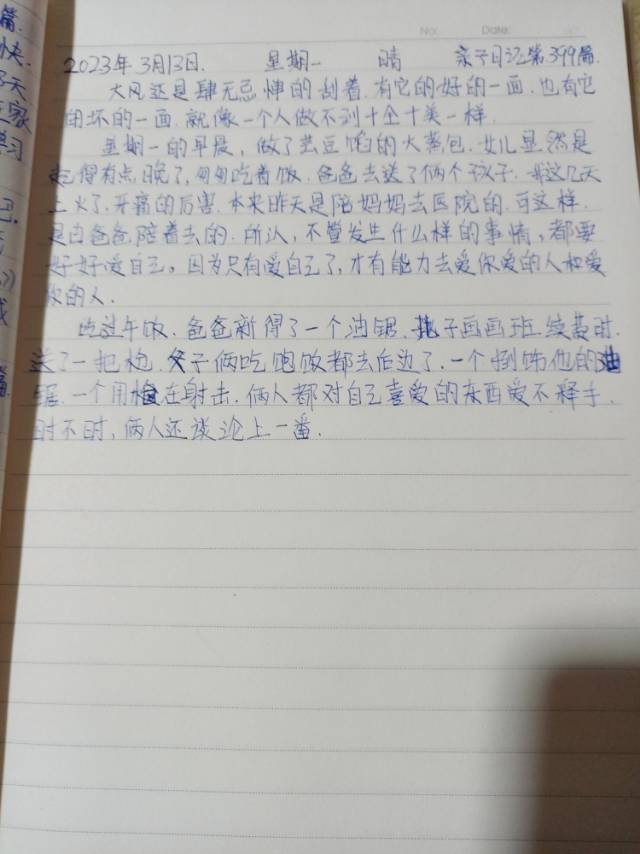 No: Date:
2023年3月13日. 星期一 晴 亲子日记第399篇.
大风还是肆无忌惮的刮着.有它的好的一面.也有它
的坏的一面.就像一个人做不到十全十美一样.
星期一的早晨,做了芸豆馅的大蒸包.女儿显然是
起得有点晚了,匆匆吃着饭.爸爸去送了俩个孩子.我这几天
上火了.牙痛的厉害.本来昨天是陪妈妈去医院的.可这样.
是由爸爸陪着去的.所以,不管发生什么样的事情,都要
好好爱自己。因为只有爱自己了,才有能力去爱你爱的人和爱
你的人.
吃过午饭.爸爸新得了一个油锯.儿子画画班续费时.
送了一把枪.父子俩吃饱饭都去后边了.一个倒饬他的油
锯.一个用枪在射击.俩人都对自己喜爱的东西爱不释手.
时不时,俩人还谈论上一番.
篇.
快.
天
家
学习